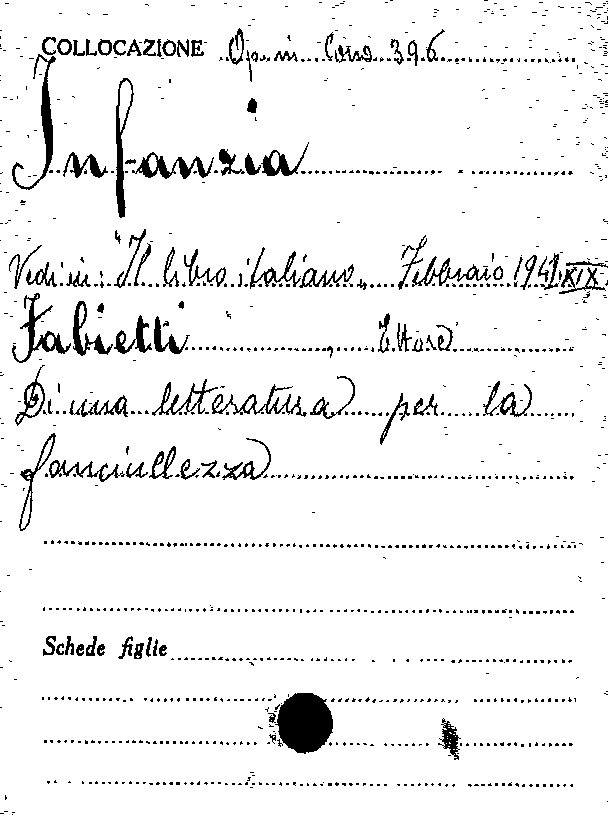 COLLOCAZIONE Op. in Cons 396
Infanzia
Vedi in: "Il libro italiano" Febbraio 1941 XIX
Fabietti, Ettore
Di una letteratura per la
fanciullezza
Schede figlie